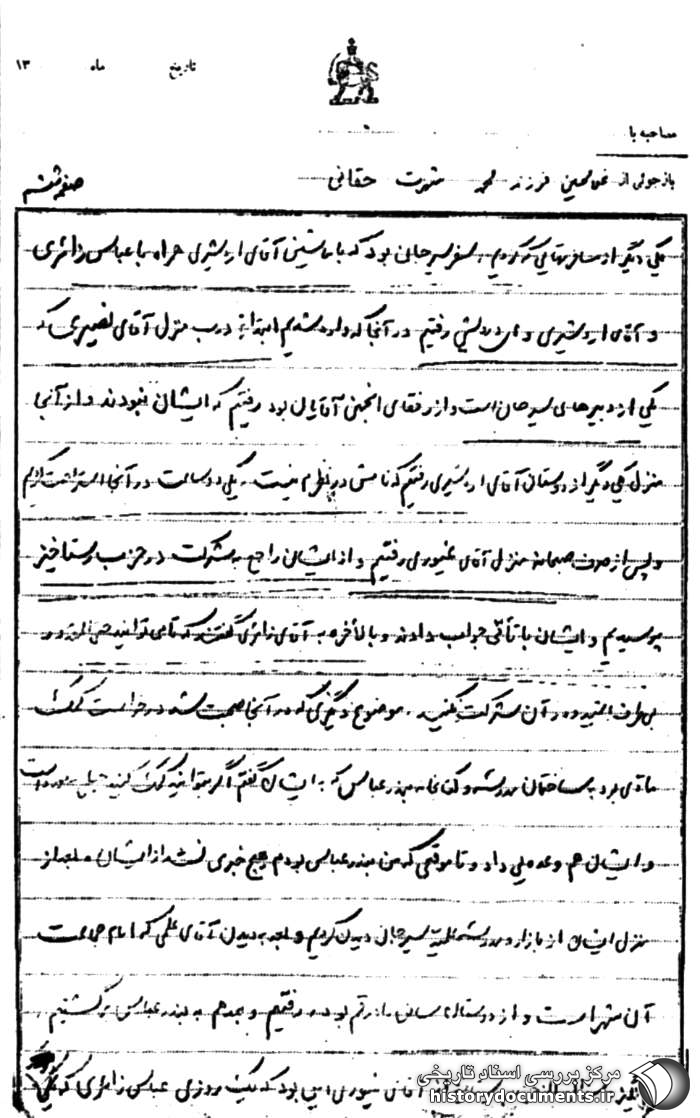 تاریخ ماه ۱۳
مصاحبه با
بازجوئی از غلامحسین فرزند محمد شهرت حقانی صفحه ششم
یکی دیگر از مسافرتهایی که کردیم سفر سیرجان بود که با ماشین آقای اردشیری همراه با عباس زائری
و آقای اردشیری و رفتیم در آنجا که وارد شدیم ابتدا به درب منزل آقای نصیری که
یکی از دبیرهای سیرجان است و از رفقای انجمنی آقایان بود رفتیم که ایشان نبودند و از آنجا
منزل یکی دیگر از دوستان آقای اردشیری رفتیم که نامش در نظرم نیست. یکی دو ساعت در آنجا استراحت کردیم
و پس از صرف صبحانه منزل آقای غیوری رفتیم و از ایشان راجع به شرکت در حزب رستاخیز
پرسیدیم و ایشان با تأنی جواب دادند و بالاخره به آقای زائری گفتند که تا می توانید حتی المقدور
بی طرف باشید و در آن شرکت نکنید. موضوع دیگری که در آنجا صحبت شد درخواست کمک
مادی بود به ساختمان مدرسه و کتابخانه بندرعباس که به ایشان گفتم اگر بتوانید کمک کنید
و ایشان هم وعده‌یی داد و تا موقعی که من بندرعباس بودم هیچ خبری نشد از ایشان. بعد از
منزل ایشان از بازار و مدرسه علمیه سیرجان دیدن کردیم و بعد به دیدن آقای علمی که امام جماعت
آن شهر است و از دوستان سابق ما در قم بود رفتیم و بعد هم به بندرعباس برگشتیم
آقای غیوری این بود که یک روزی عباس زائری که یکی
مرکز بررسی اسناد تاریخی
historydocuments.ir